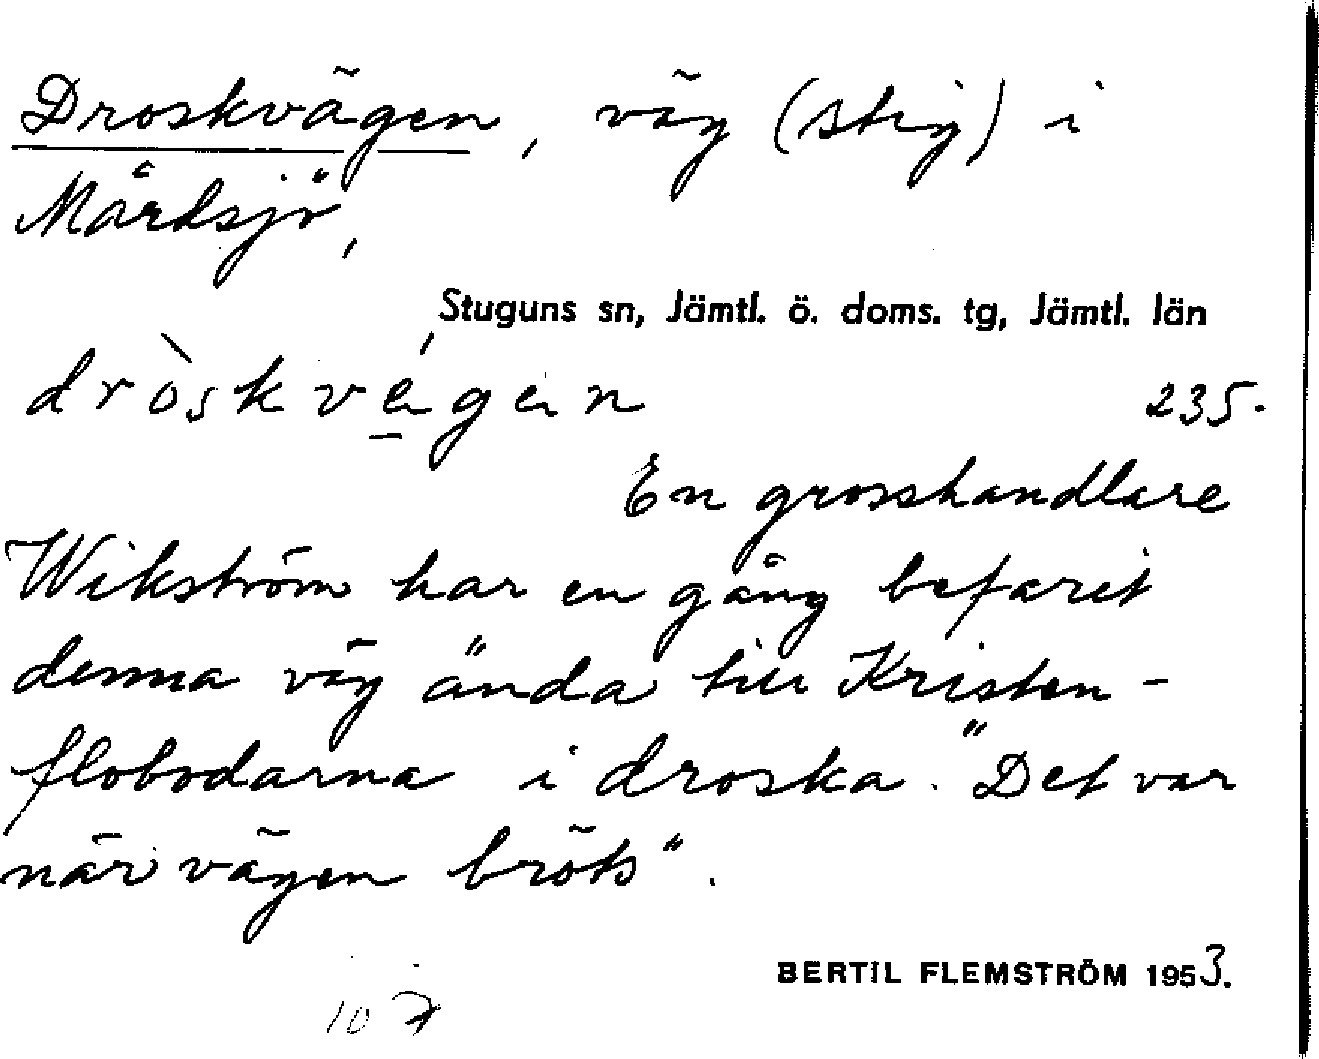 Droskvägen, väg (stig) i
Mårdsjö,
Stuguns sn, Jämtl. ö. doms. tg, Jämtl. län
dròskvégen 235.
En grosshandlare
Wikström har en gång befarit
denna väg ända till Kristen-
flobodarna i droska. "Det var
när vägen bröts".
BERTIL FLEMSTRÖM 1953.